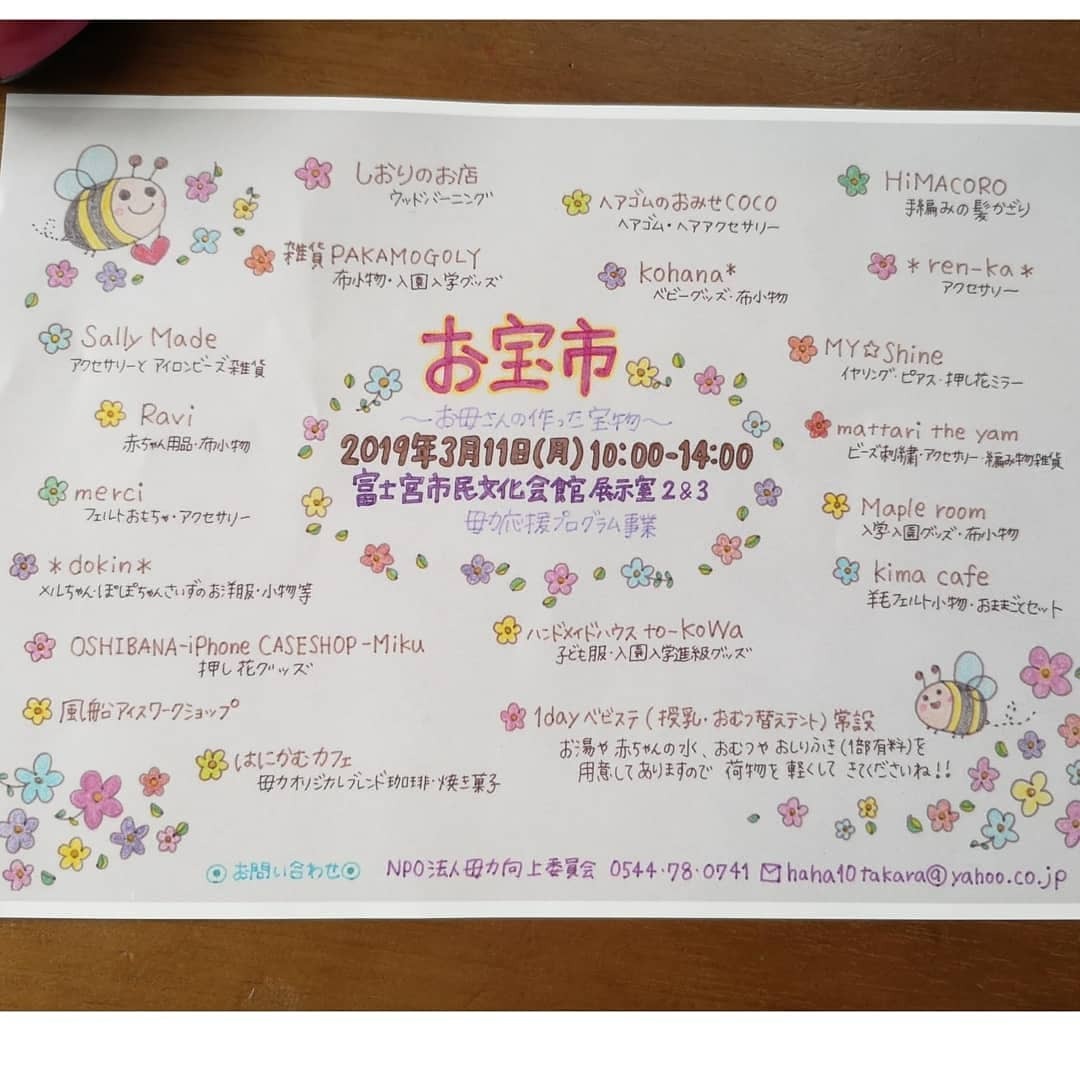 しおりのお店
ウッドバーニング
ヘアゴムのおみせCOCO
ヘアゴム・ヘアアクセサリー
HiMACORO
手編みの髪かざり
雑貨PAKAMOGOLY
布小物・入園入学グッズ
kohana*
ベビーグッズ・布小物
*ren-ka*
アクセサリー
Sally Made
アクセサリーとアイロンビーズ雑貨
お宝市
〜お母さんの作った宝物〜
2019年3月11日(月)10:00-14:00
富士宮市民文化会館展示室2&3
母力応援プログラム事業
MY☆Shine
イヤリング・ピアス・押し花ミラー
Ravi
赤ちゃん用品・布小物
mattari the yam
ビーズ刺繍・アクセサリー・編み物雑貨
merci
フェルトおもちゃ・アクセサリー
Maple room
入学入園グッズ・布小物
*dokin*
メルちゃん・ぽぽちゃんさいずのお洋服・小物等
kima cafe
羊毛フェルト小物・おままごとセット
OSHIBANA-iPhone CASESHOP-Miku
押し花グッズ
ハンドメイドハウス to-koWa
子ども服・入園入学進級グッズ
風船アイスワークショップ
1day ベビステ(授乳・おむつ替えテント)常設
お湯や赤ちゃんの水、おむつやおしりふき(1部有料)を
用意してありますので 荷物を軽くして きてくださいね!!
はにかむカフェ
母力オリジナルブレンド珈琲・焼き菓子
◎お問い合わせ◎ NPO法人母力向上委員会 0544・78・0741 ✉haha10takara@yahoo.co.jp